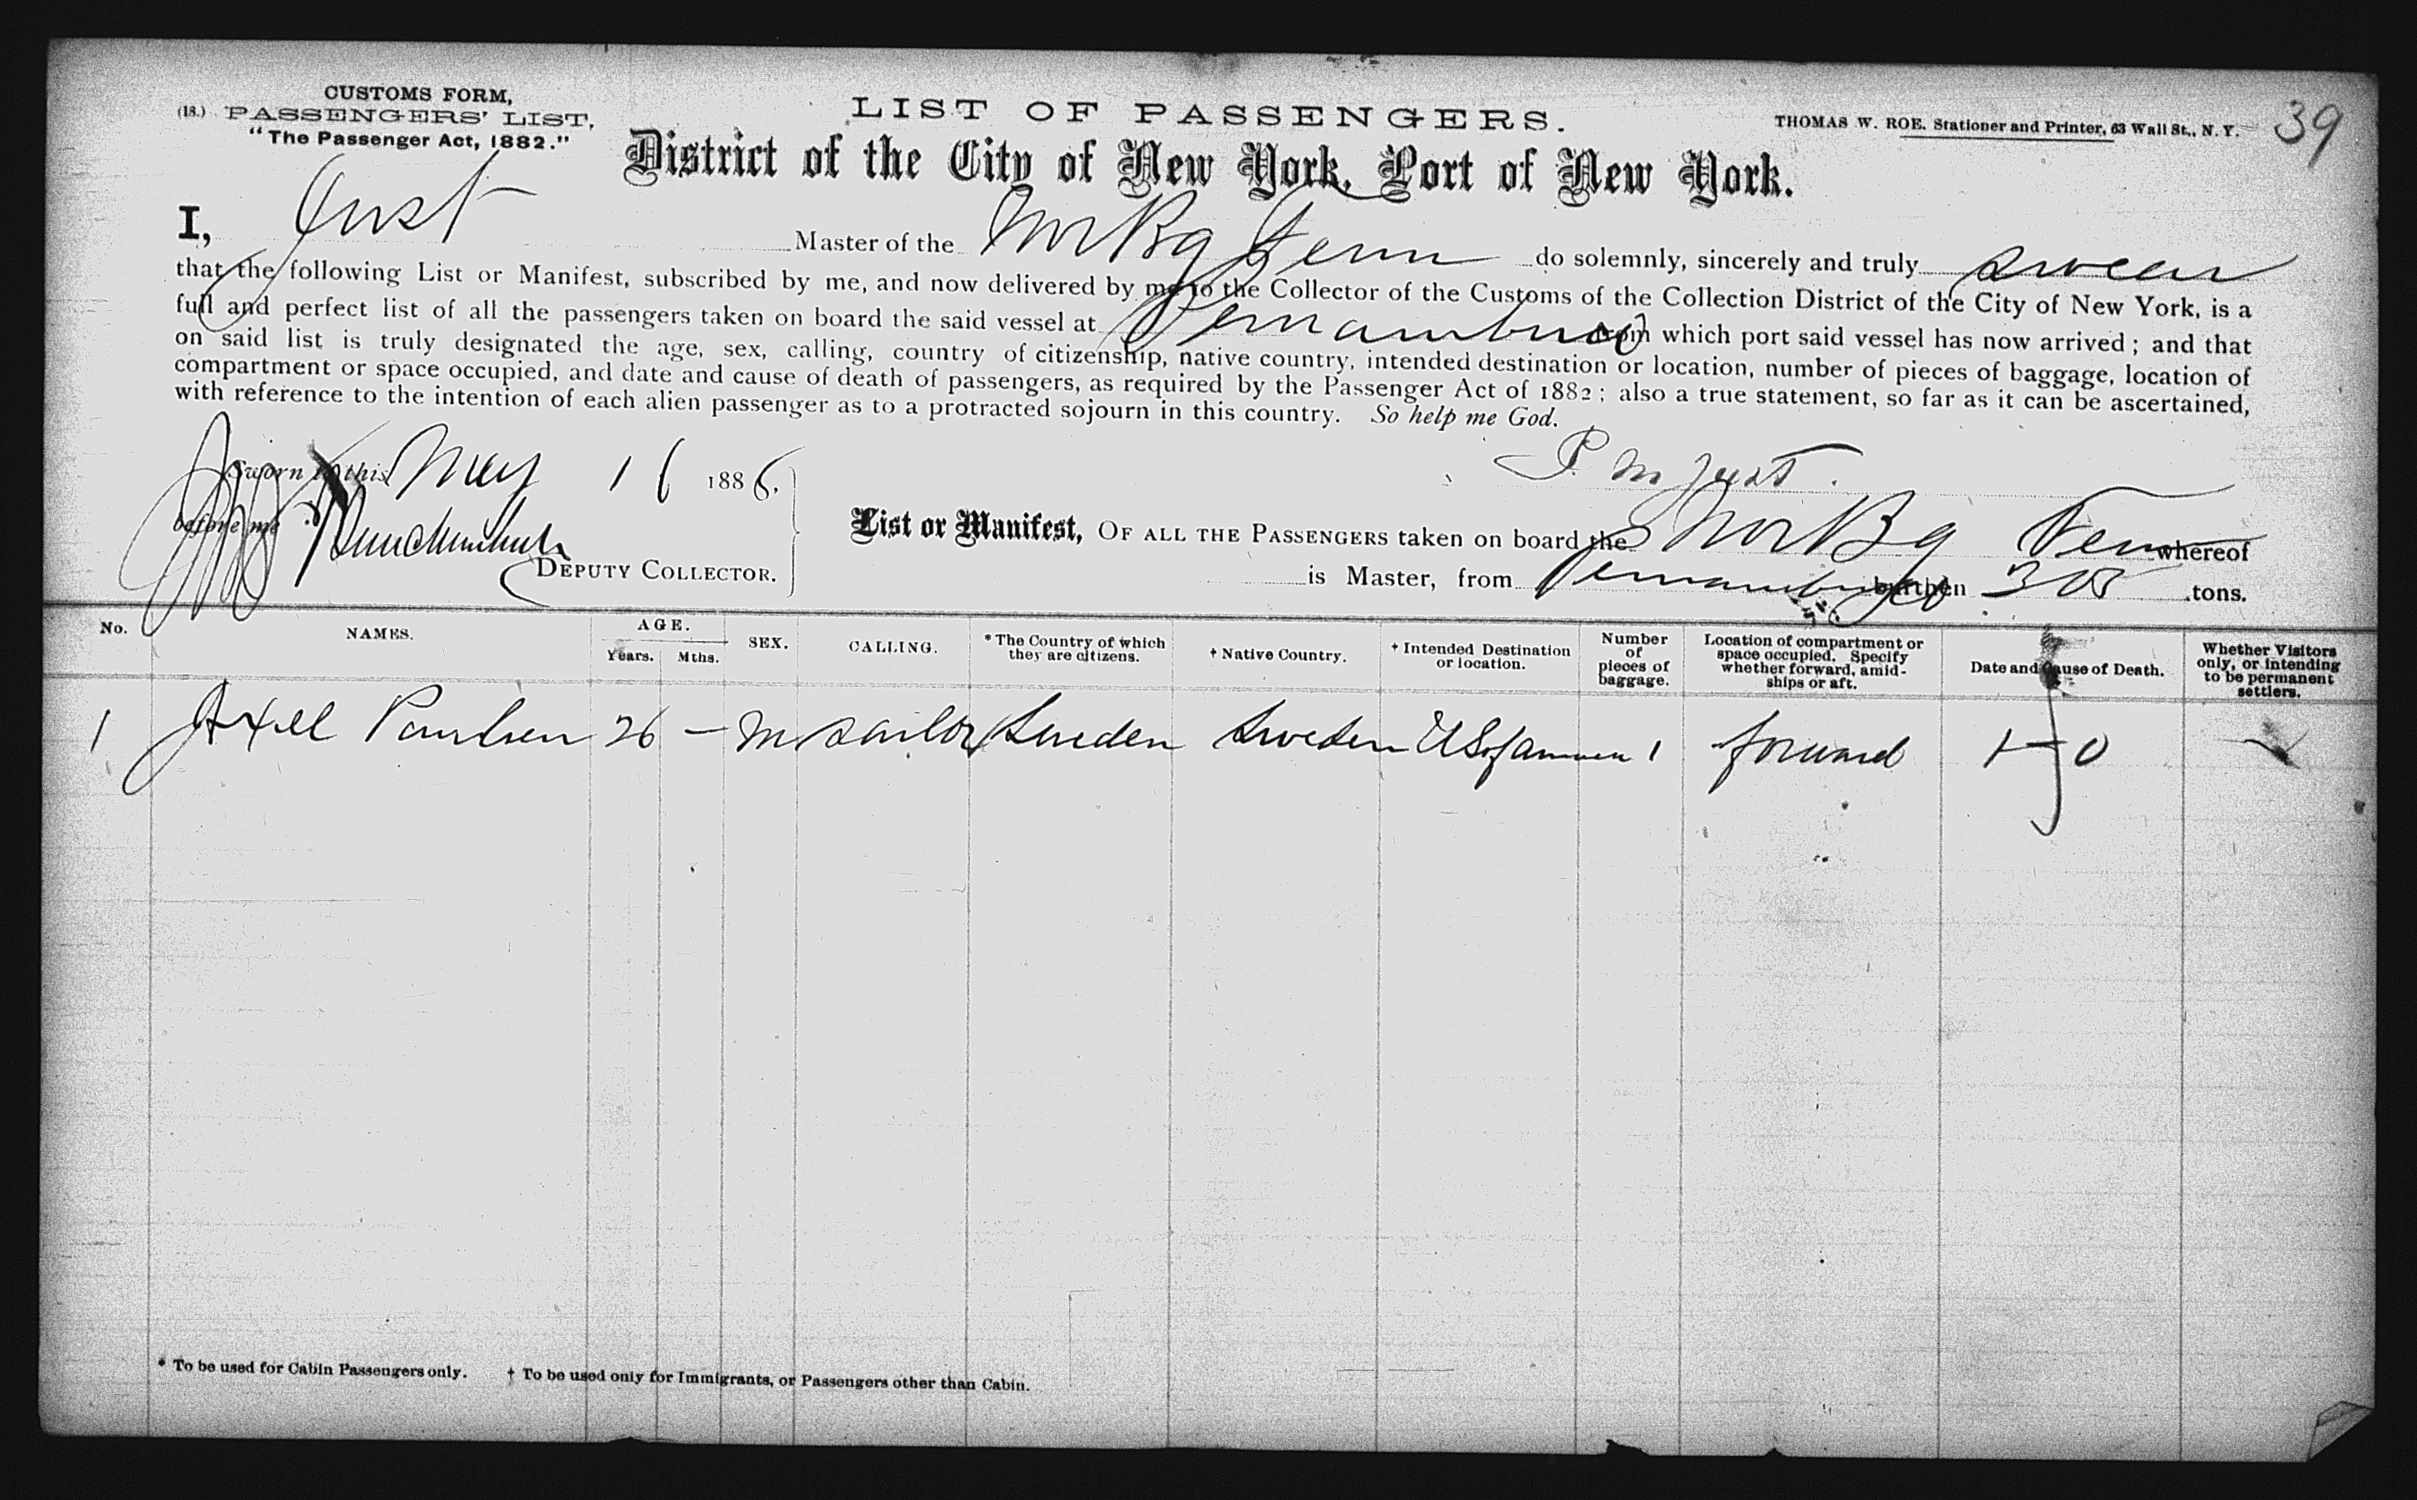 CUSTOMS FORM,
(18.) PASSENGERS' LIST,
"The Passenger Act, 1882."
LIST OF PASSENGERS.
THOMAS W. ROE. Stationer and Printer, 63 Wall St., N. Y.
39
District of the City of New York, Port of New York.
I, Just Master of the Nor Bg Fem do solemnly, sincerely and truly swear
that the following List or Manifest, subscribed by me, and now delivered by me to the Collector of the Customs of the Collection District of the City of New York, is a
full and perfect list of all the passengers taken on board the said vessel at Pernambuco from which port said vessel has now arrived; and that
on said list is truly designated the age, sex, calling, country of citizenship, native country, intended destination or location, number of pieces of baggage, location of
compartment or space occupied, and date and cause of death of passengers, as required by the Passenger Act of 1882; also a true statement, so far as it can be ascertained,
with reference to the intention of each alien passenger as to a protracted sojourn in this country. So help me God.
Sworn to this May 1 1886.
P. M Just.
before me
DEPUTY COLLECTOR.
List or Manifest, OF ALL THE PASSENGERS taken on board the Nor Bg Fem whereof
is Master, from Pernambuco burthen tons.
No. NAMES. AGE. Years. Mths. SEX. CALLING. * The Country of which they are citizens. † Native Country. † Intended Destination or location. Number of pieces of baggage. Location of compartment or space occupied. Specify whether forward, amidships or aft. Date and Cause of Death. Whether Visitors only, or intending to be permanent settlers.
1 Axell Paulsen 26 — M sailor Sweden Sweden US of America 1 forward
* To be used for Cabin Passengers only. † To be used only for Immigrants, or Passengers other than Cabin.